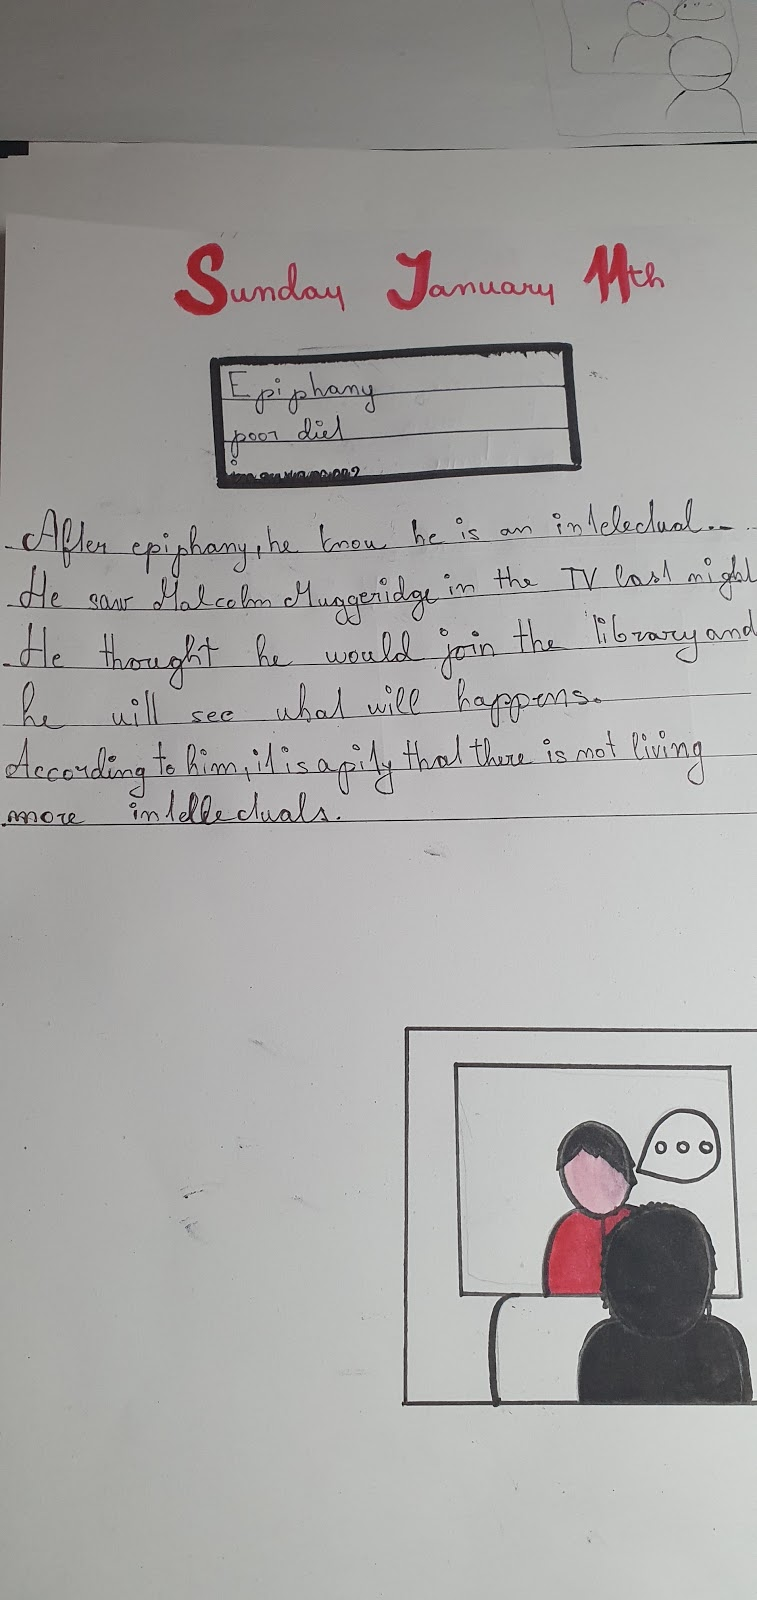 Sunday January 11th
Epiphany
poor diet
After epiphany, he know he is an intelectual...
He saw Malcolm Muggeridge in the TV last night
He thought he would join the library and
he will see what will happens.
According to him, it is a pity that there is not living
more intellectuals.